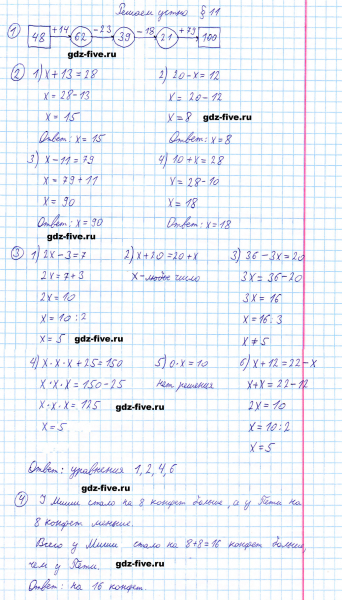 Решаем устно § 11
1) 48 +14 62 -23 39 -18 21 +79 100
gdz-five.ru
2) 1) x + 13 = 28 2) 20 - x = 12
x = 28 - 13 x = 20 - 12
x = 15 x = 8 gdz-five.ru
Ответ: x = 15 Ответ: x = 8
3) x - 11 = 79 4) 10 + x = 28
x = 79 + 11 x = 28 - 10
x = 90 x = 18
Ответ: x = 90 Ответ: x = 18
gdz-five.ru
3) 1) 2x - 3 = 7 2) x + 20 = 20 + x 3) 36 - 3x = 20
2x = 7 + 3 x - любое число 3x = 36 - 20
2x = 10 3x = 16
x = 10 : 2 x = 16 : 3
x = 5 gdz-five.ru x ≠ 5
4) x · x · x + 25 = 150 5) 0 · x = 10 6) x + 12 = 22 - x
x · x · x = 150 - 25 нет решения x + x = 22 - 12
x · x · x = 125 gdz-five.ru 2x = 10
x = 5 x = 10 : 2
x = 5
Ответ: уравнения 1, 2, 4, 6
gdz-five.ru
4) У Миши стало на 8 конфет больше, а у Пети на
8 конфет меньше. gdz-five.ru
Всего у Миши стало на 8 + 8 = 16 конфет больше,
чем у Пети. gdz-five.ru
Ответ: на 16 конфет.